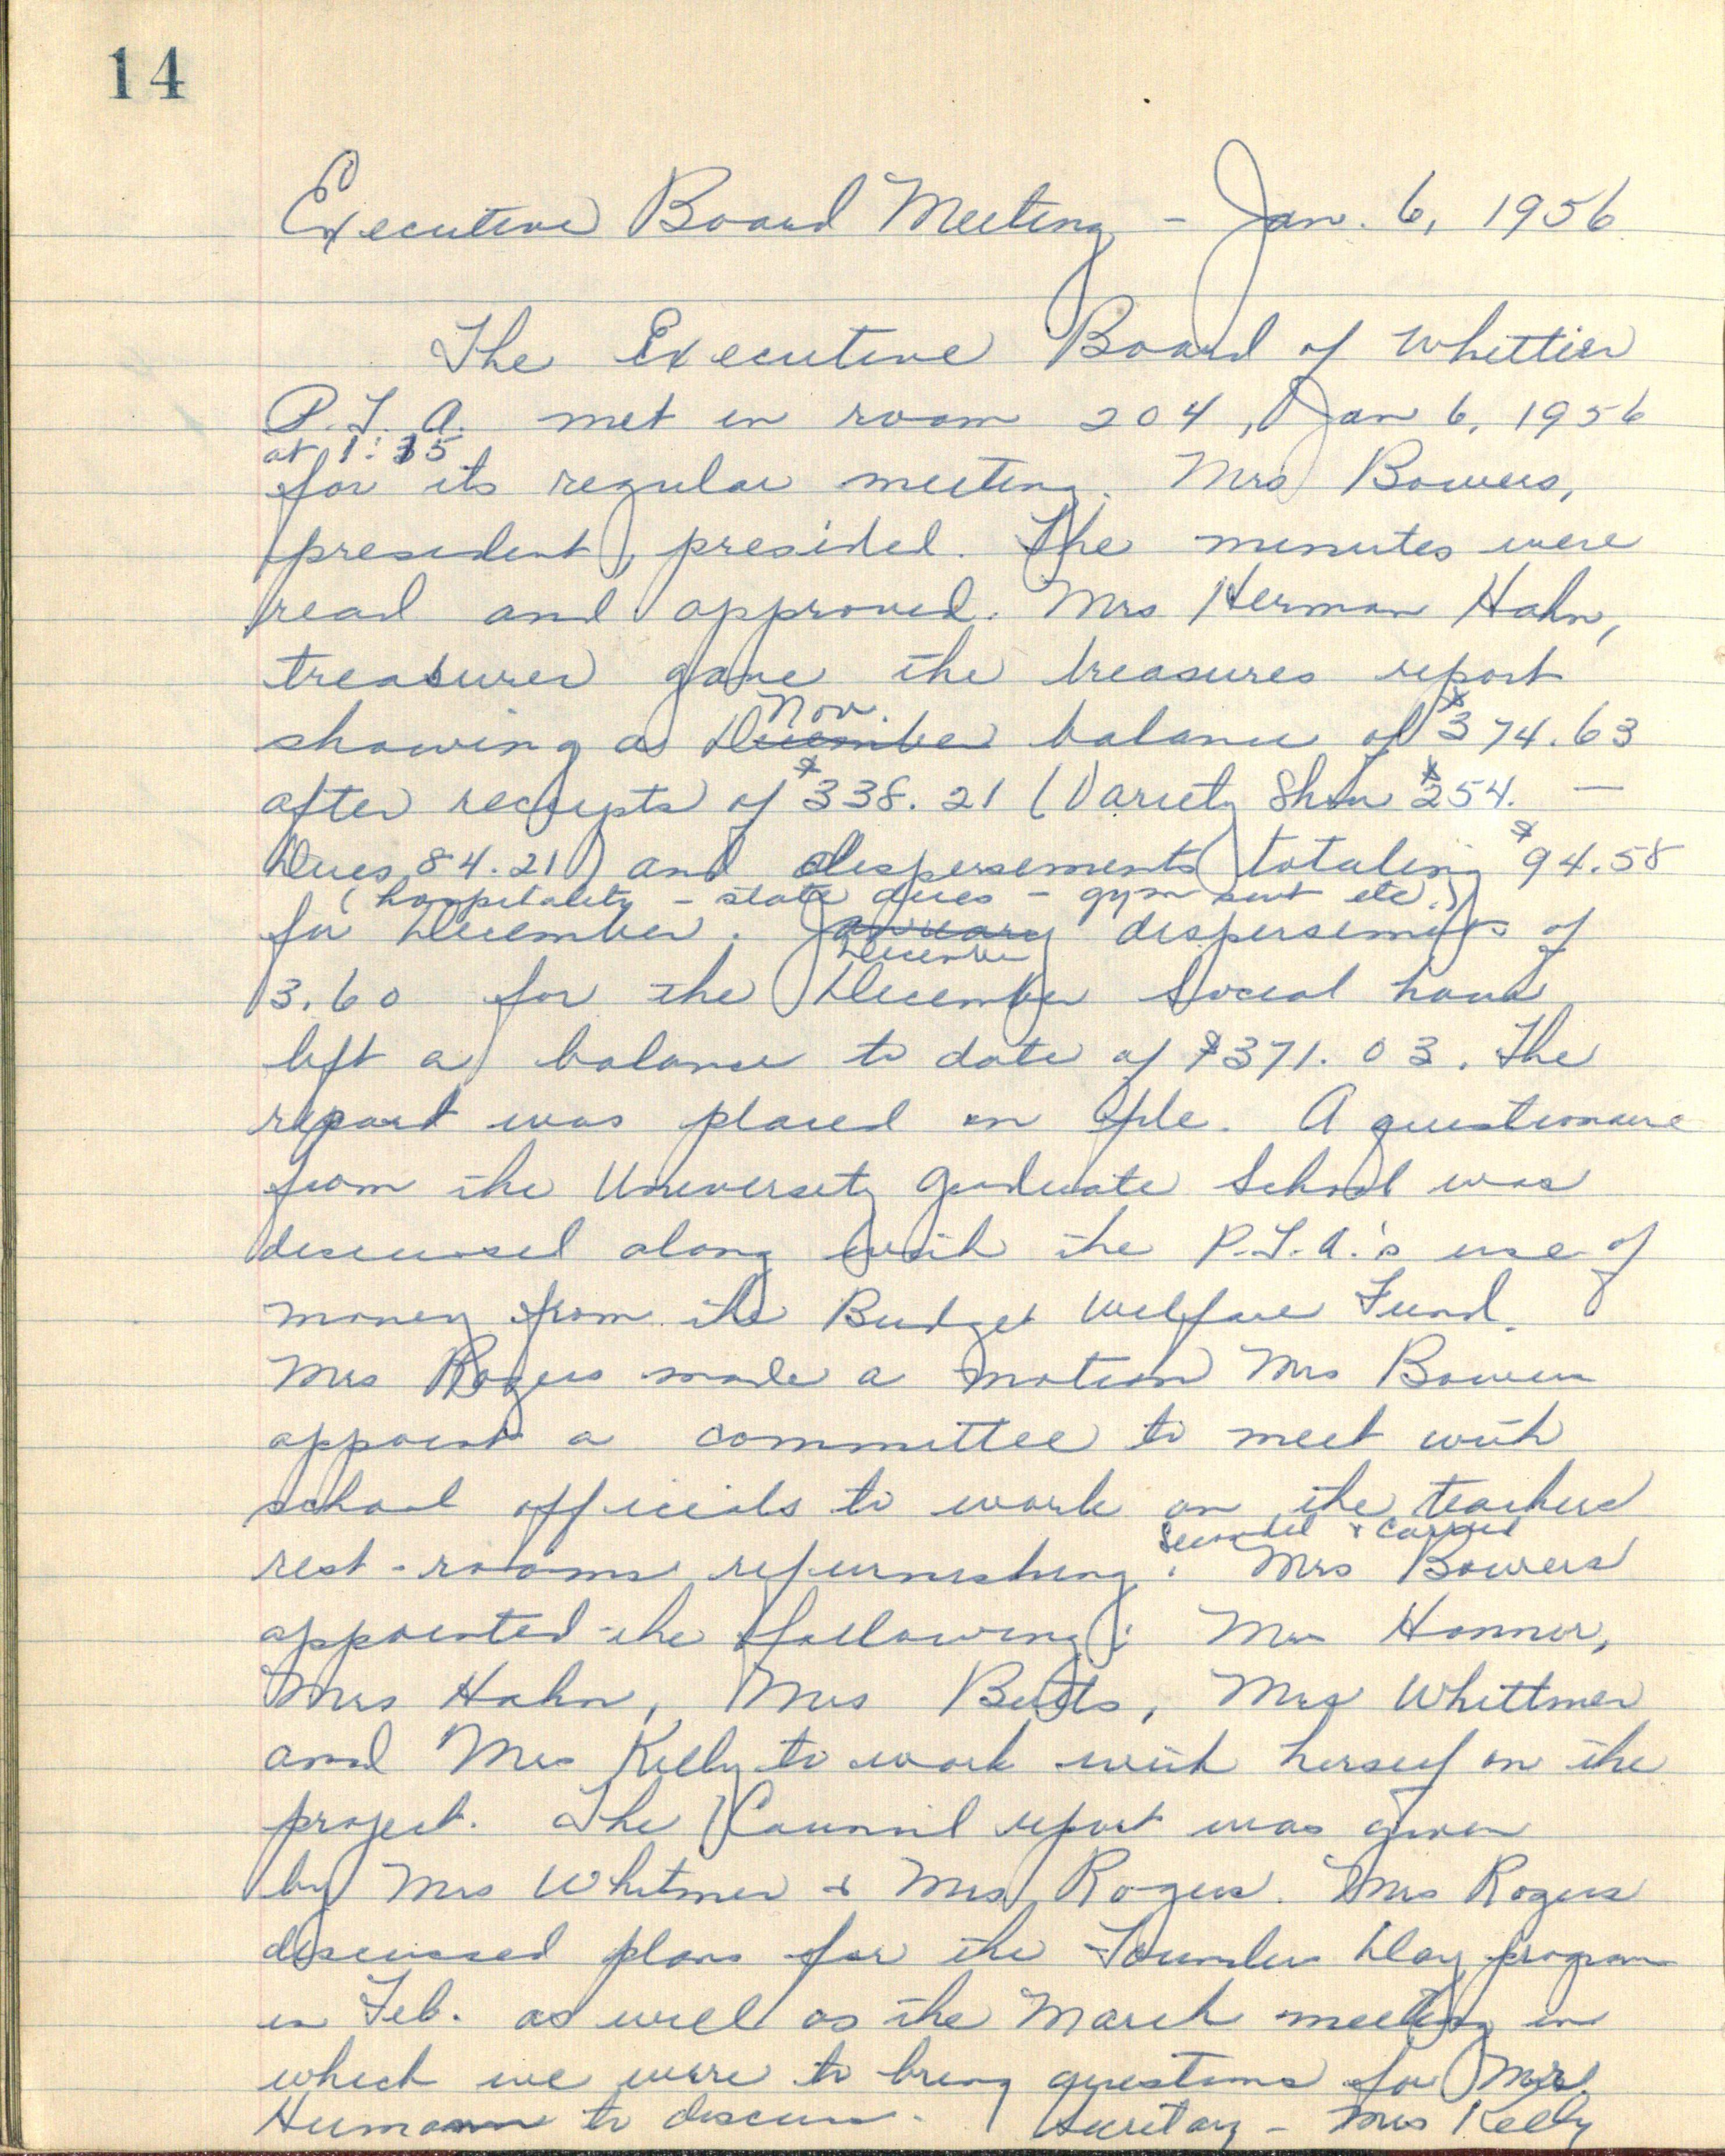 14
Executive Board Meeting - Jan. 6, 1956
The Executive Board of Whittier
P.T.A. met in room 204, Jan 6, 1956
at 1:15
for its regular meeting. Mrs Bowers,
president, presided. The minutes were
read and approved. Mrs Herman Hahn,
treasurer gave the treasures report
Nov.
showing a December balance of $374.63
after receipts of $338.21 (Variety Show $254. —
Dues 84.21) and dispersements totaling $94.58
(hospitality - state dues - gym suit etc.)
for December. January dispersements of
December
3.60 for the December Social hour
left a balance to date of $371.03. The
report was placed on file. A questionaire
from the University Graduate School was
discussed along with the P.T.A.'s use of
money from the Budget Welfare Fund.
Mrs Rogers made a motion Mrs Bowers
appoint a committee to meet with
school officials to work on the teachers
seconded & carried
rest-rooms refurnishing. Mrs Bowers
appointed the following: Mrs Honner,
Mrs Hahn, Mrs Butts, Mrs Whittmer
and Mrs Kelly to work with herself on the
project. The Council report was given
by Mrs Whitmer & Mrs Rogers. Mrs Rogers
discussed plans for the Founders Day program
in Feb. as well as the March meeting in
which we were to bring questions for Mrs.
Humann to discuss. Secretary - Mrs Kelly